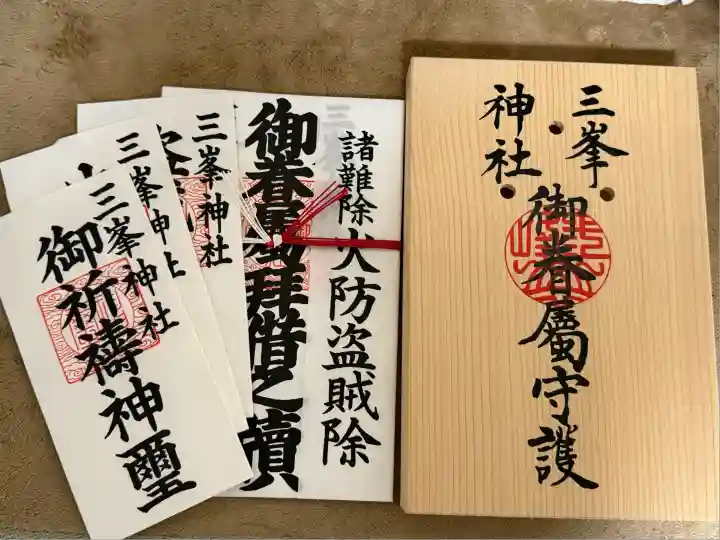 三峯
神社
御眷屬守護
諸難除火防盗賊除
御眷屬拝借之牘
三峯神社
三峯神社
三峯神社
御祈禱神璽